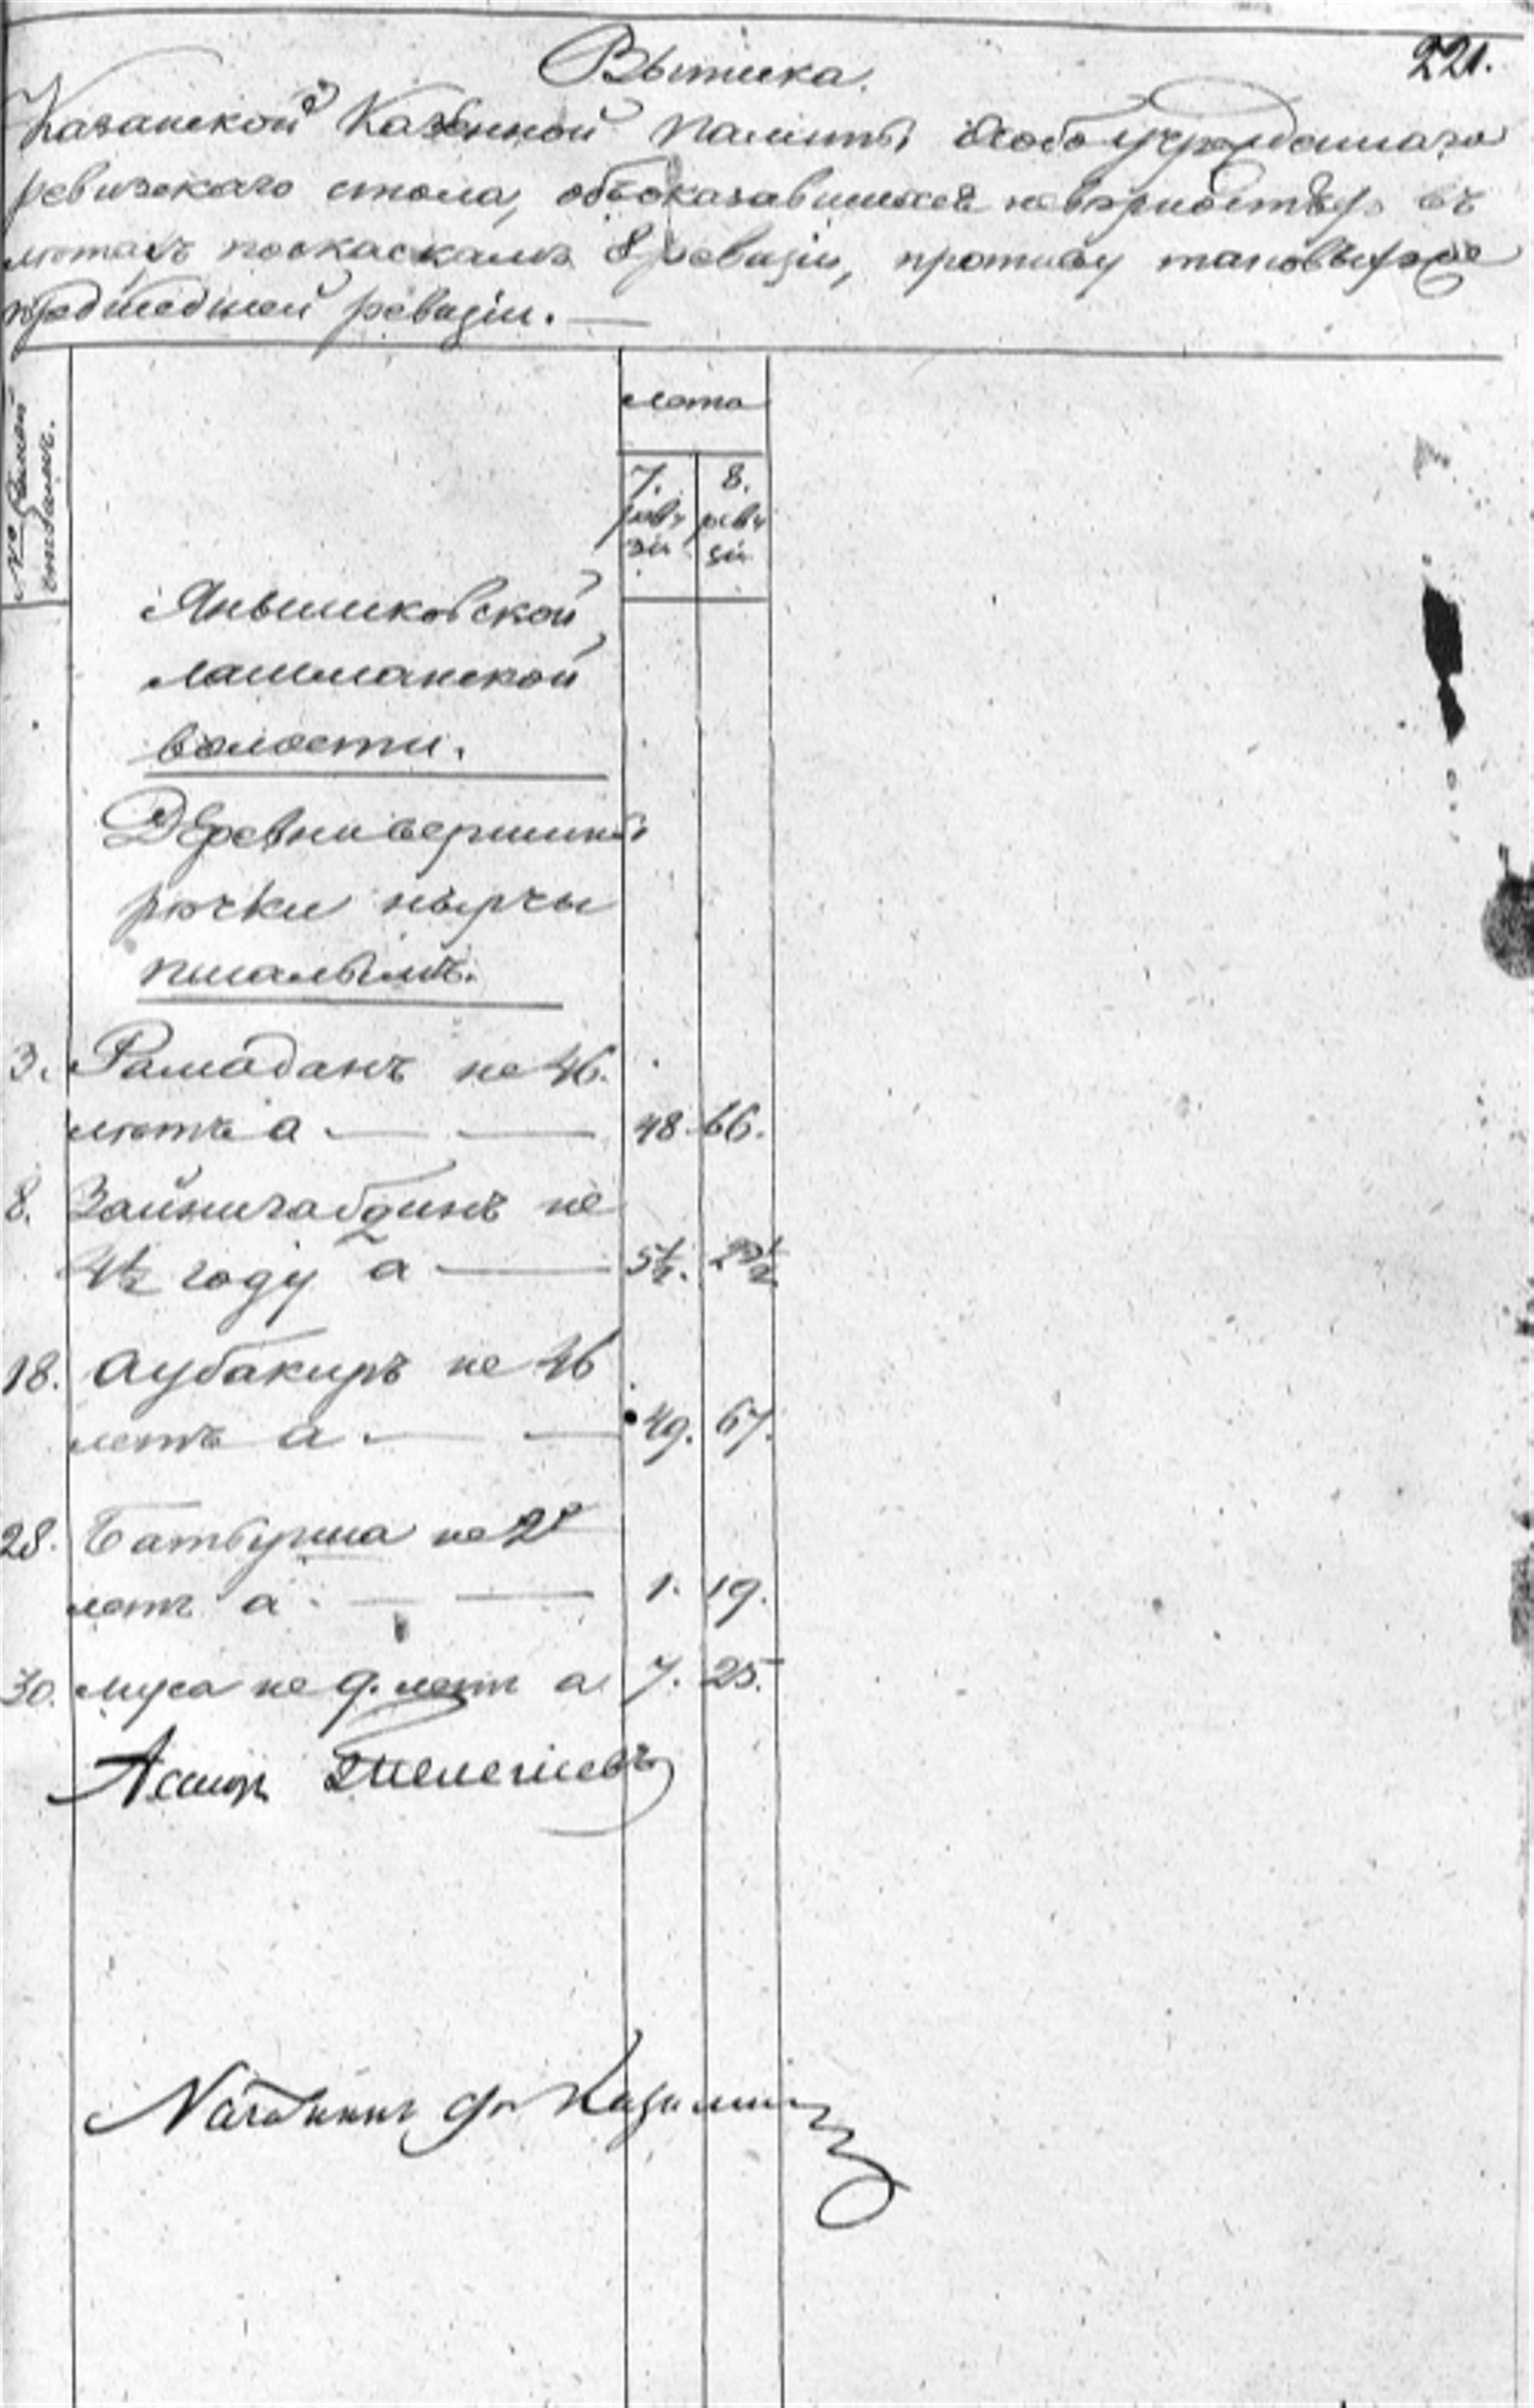 221.
Выписка.
Казанской Казенной Палаты Особо учрежденнаго
ревизскаго стола, обоказавшихся неверностяхъ въ
летахъ посказкамъ 8 ревизіи, противу таковыхъ же
предшедшей ревизіи.
№ семей
лета
7. реви зіи
8. реви зіи
Янышиковской
лашманской
волости.
Деревни вершины
речки нырчы
пшалымъ.
3. Рамаданъ не 46.
летъ а — — 48. 66.
8. Зайнигабдинъ не
4½ году а — 5½. 23½
18. Аубакиръ не 46
летъ а — — 49. 67.
28. Батырша не 2
летъ а — — 1. 19.
30. муса не 9. летъ а 7. 25.